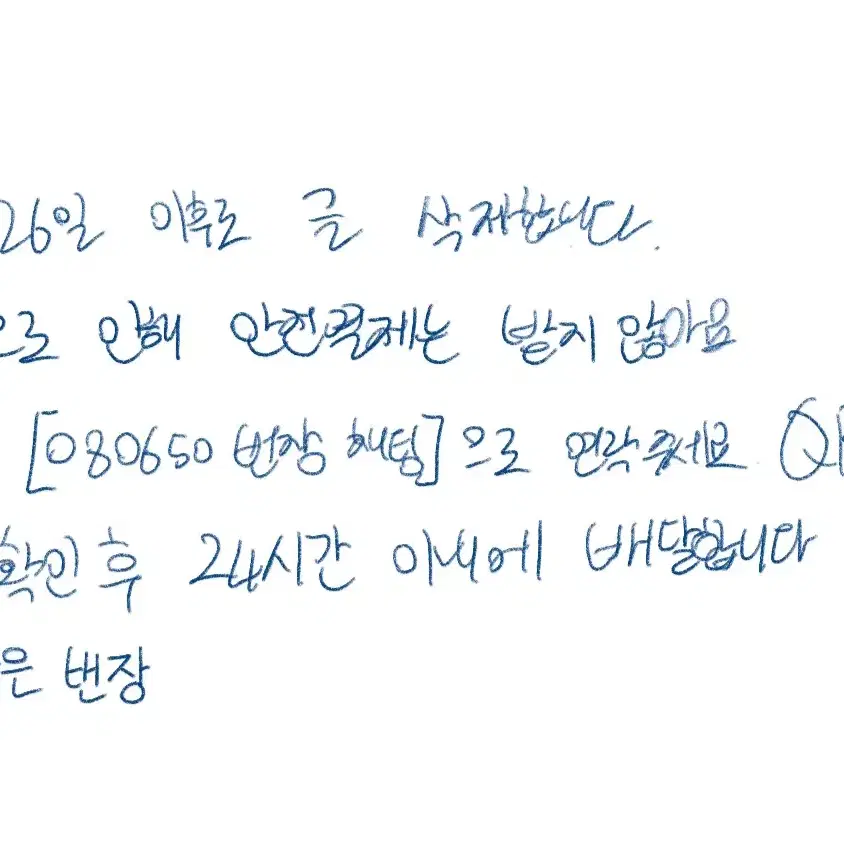 26일 이후로 글 삭제합니다.
으로 인해 안전결제는 받지 않아요
[080650 번장 해텀]으로 연락주세요
확인 후 24시간 이내에 배달합니다
은 밴장